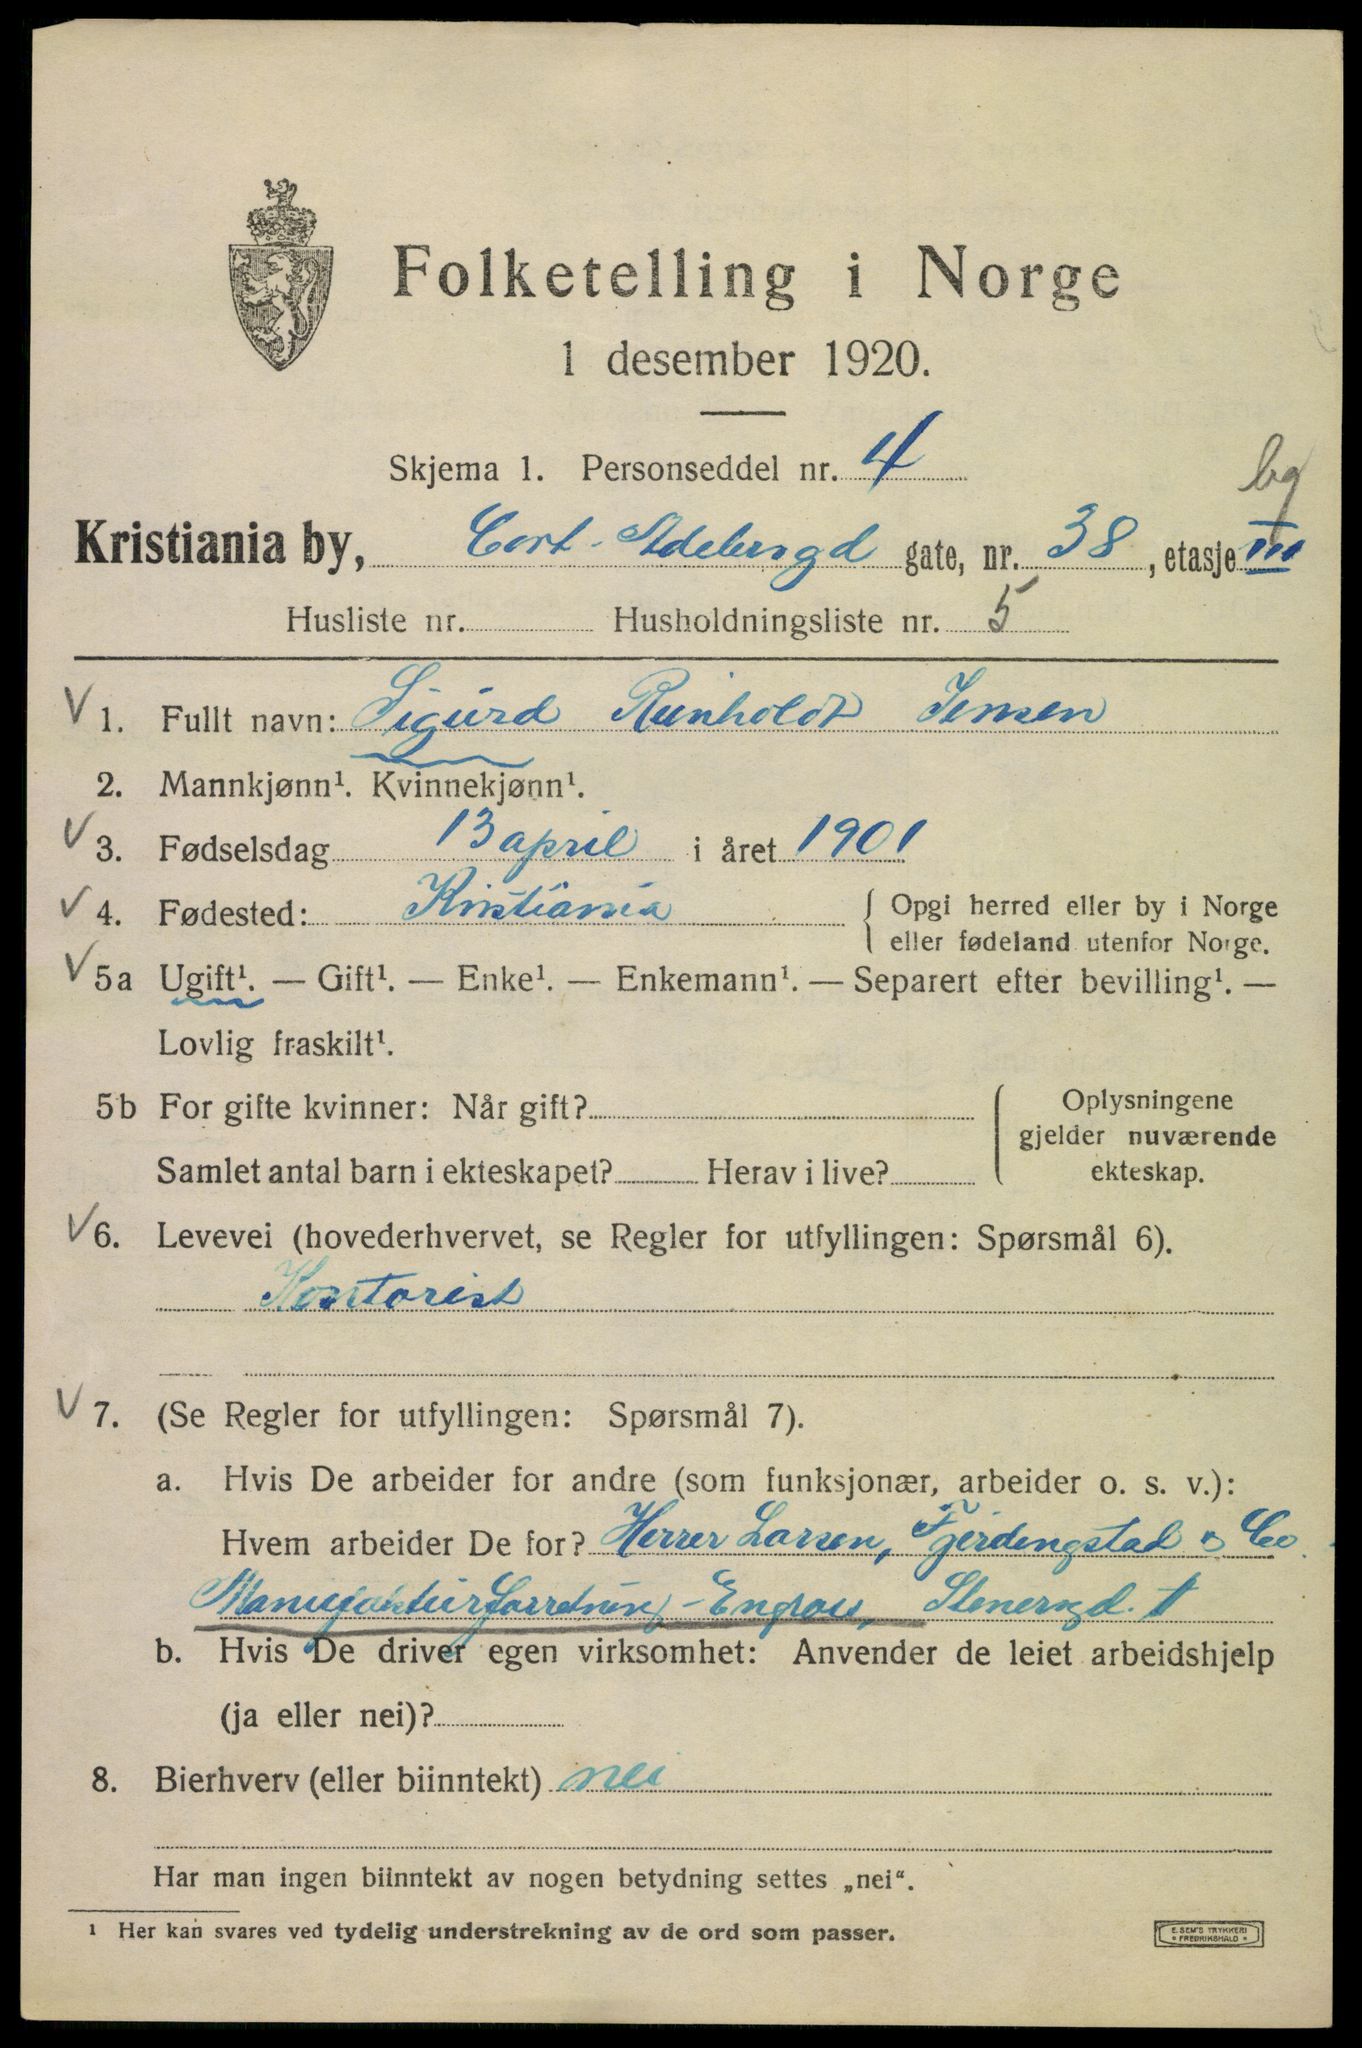 Folketelling i Norge
1 desember 1920.
Skjema 1. Personseddel nr. 4
bg
Kristiania by, Cort-Adelersgd gate, nr. 38, etasje III
Husliste nr. Husholdningsliste nr. 5
V 1. Fullt navn: Sigurd Reinholdt Jensen
2. Mannkjønn¹. Kvinnekjønn¹.
V 3. Fødselsdag 13 april i året 1901
V 4. Fødested: Kristiania { Opgi herred eller by i Norge
eller fødeland utenfor Norge.
V 5a Ugift¹. — Gift¹. — Enke¹. — Enkemann¹. — Separert efter bevilling¹. —
Lovlig fraskilt¹.
5b For gifte kvinner: Når gift?
Samlet antal barn i ekteskapet? Herav i live?
Oplysningene
gjelder nuværende
ekteskap.
V 6. Levevei (hovederhvervet, se Regler for utfyllingen: Spørsmål 6).
Kontorist
V 7. (Se Regler for utfyllingen: Spørsmål 7).
a. Hvis De arbeider for andre (som funksjonær, arbeider o. s. v.):
Hvem arbeider De for? Herrer Larsen, Fjerdengstad & Co
Manufakturforretning-Engros, Stenersgd. 1
b. Hvis De driver egen virksomhet: Anvender de leiet arbeidshjelp
(ja eller nei)?
8. Bierhverv (eller biinntekt) nei
Har man ingen biinntekt av nogen betydning settes „nei“.
¹ Her kan svares ved tydelig understrekning av de ord som passer.
E. SEM'S TRYKKERI
• FREDRIKSHALD •